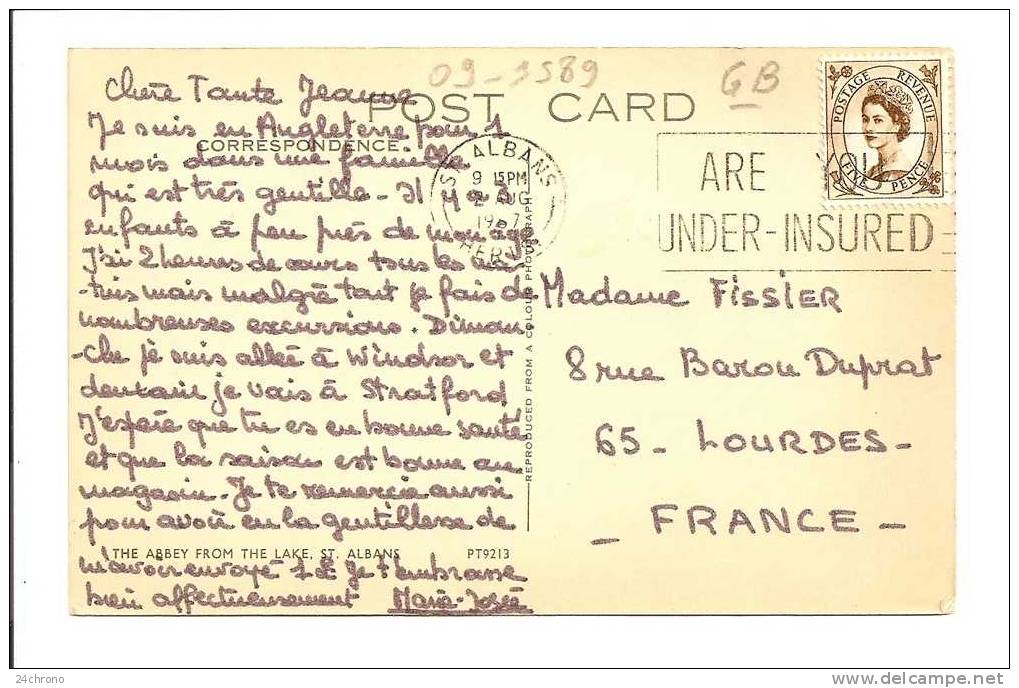 09-3589
GB
POST CARD
CORRESPONDENCE
Chère Tante Jeanne
Je suis en Angleterre pour 1
mois dans une famille
qui est très gentille - Il y a 5
enfants à peu près de mon âge
J'ai 2 heures de cours tous les ma-
-tins mais malgré tout je fais de
nombreuses excursions. Diman-
-che je suis allée à Windsor et
demain je vais à Stratford
J'espère que tu es en bonne santé
et que la saison est bonne au
magasin. Je te remercie aussi
pour avoir eu la gentillesse de
m'avoir envoyé 1£ Je t'embrasse
bien affectueusement Marie-Josée
THE ABBEY FROM THE LAKE, ST. ALBANS PT9213
REPRODUCED FROM A COLOUR PHOTOGRAPH
ST ALBANS
9 15PM
2 AUG
1967
HERTS
ARE YOU
UNDER-INSURED
POSTAGE REVENUE
FIVE PENCE
Madame FISSIER
8 rue Baron Duprat
65 - LOURDES -
- FRANCE -
24chrono
www.delcampe.net